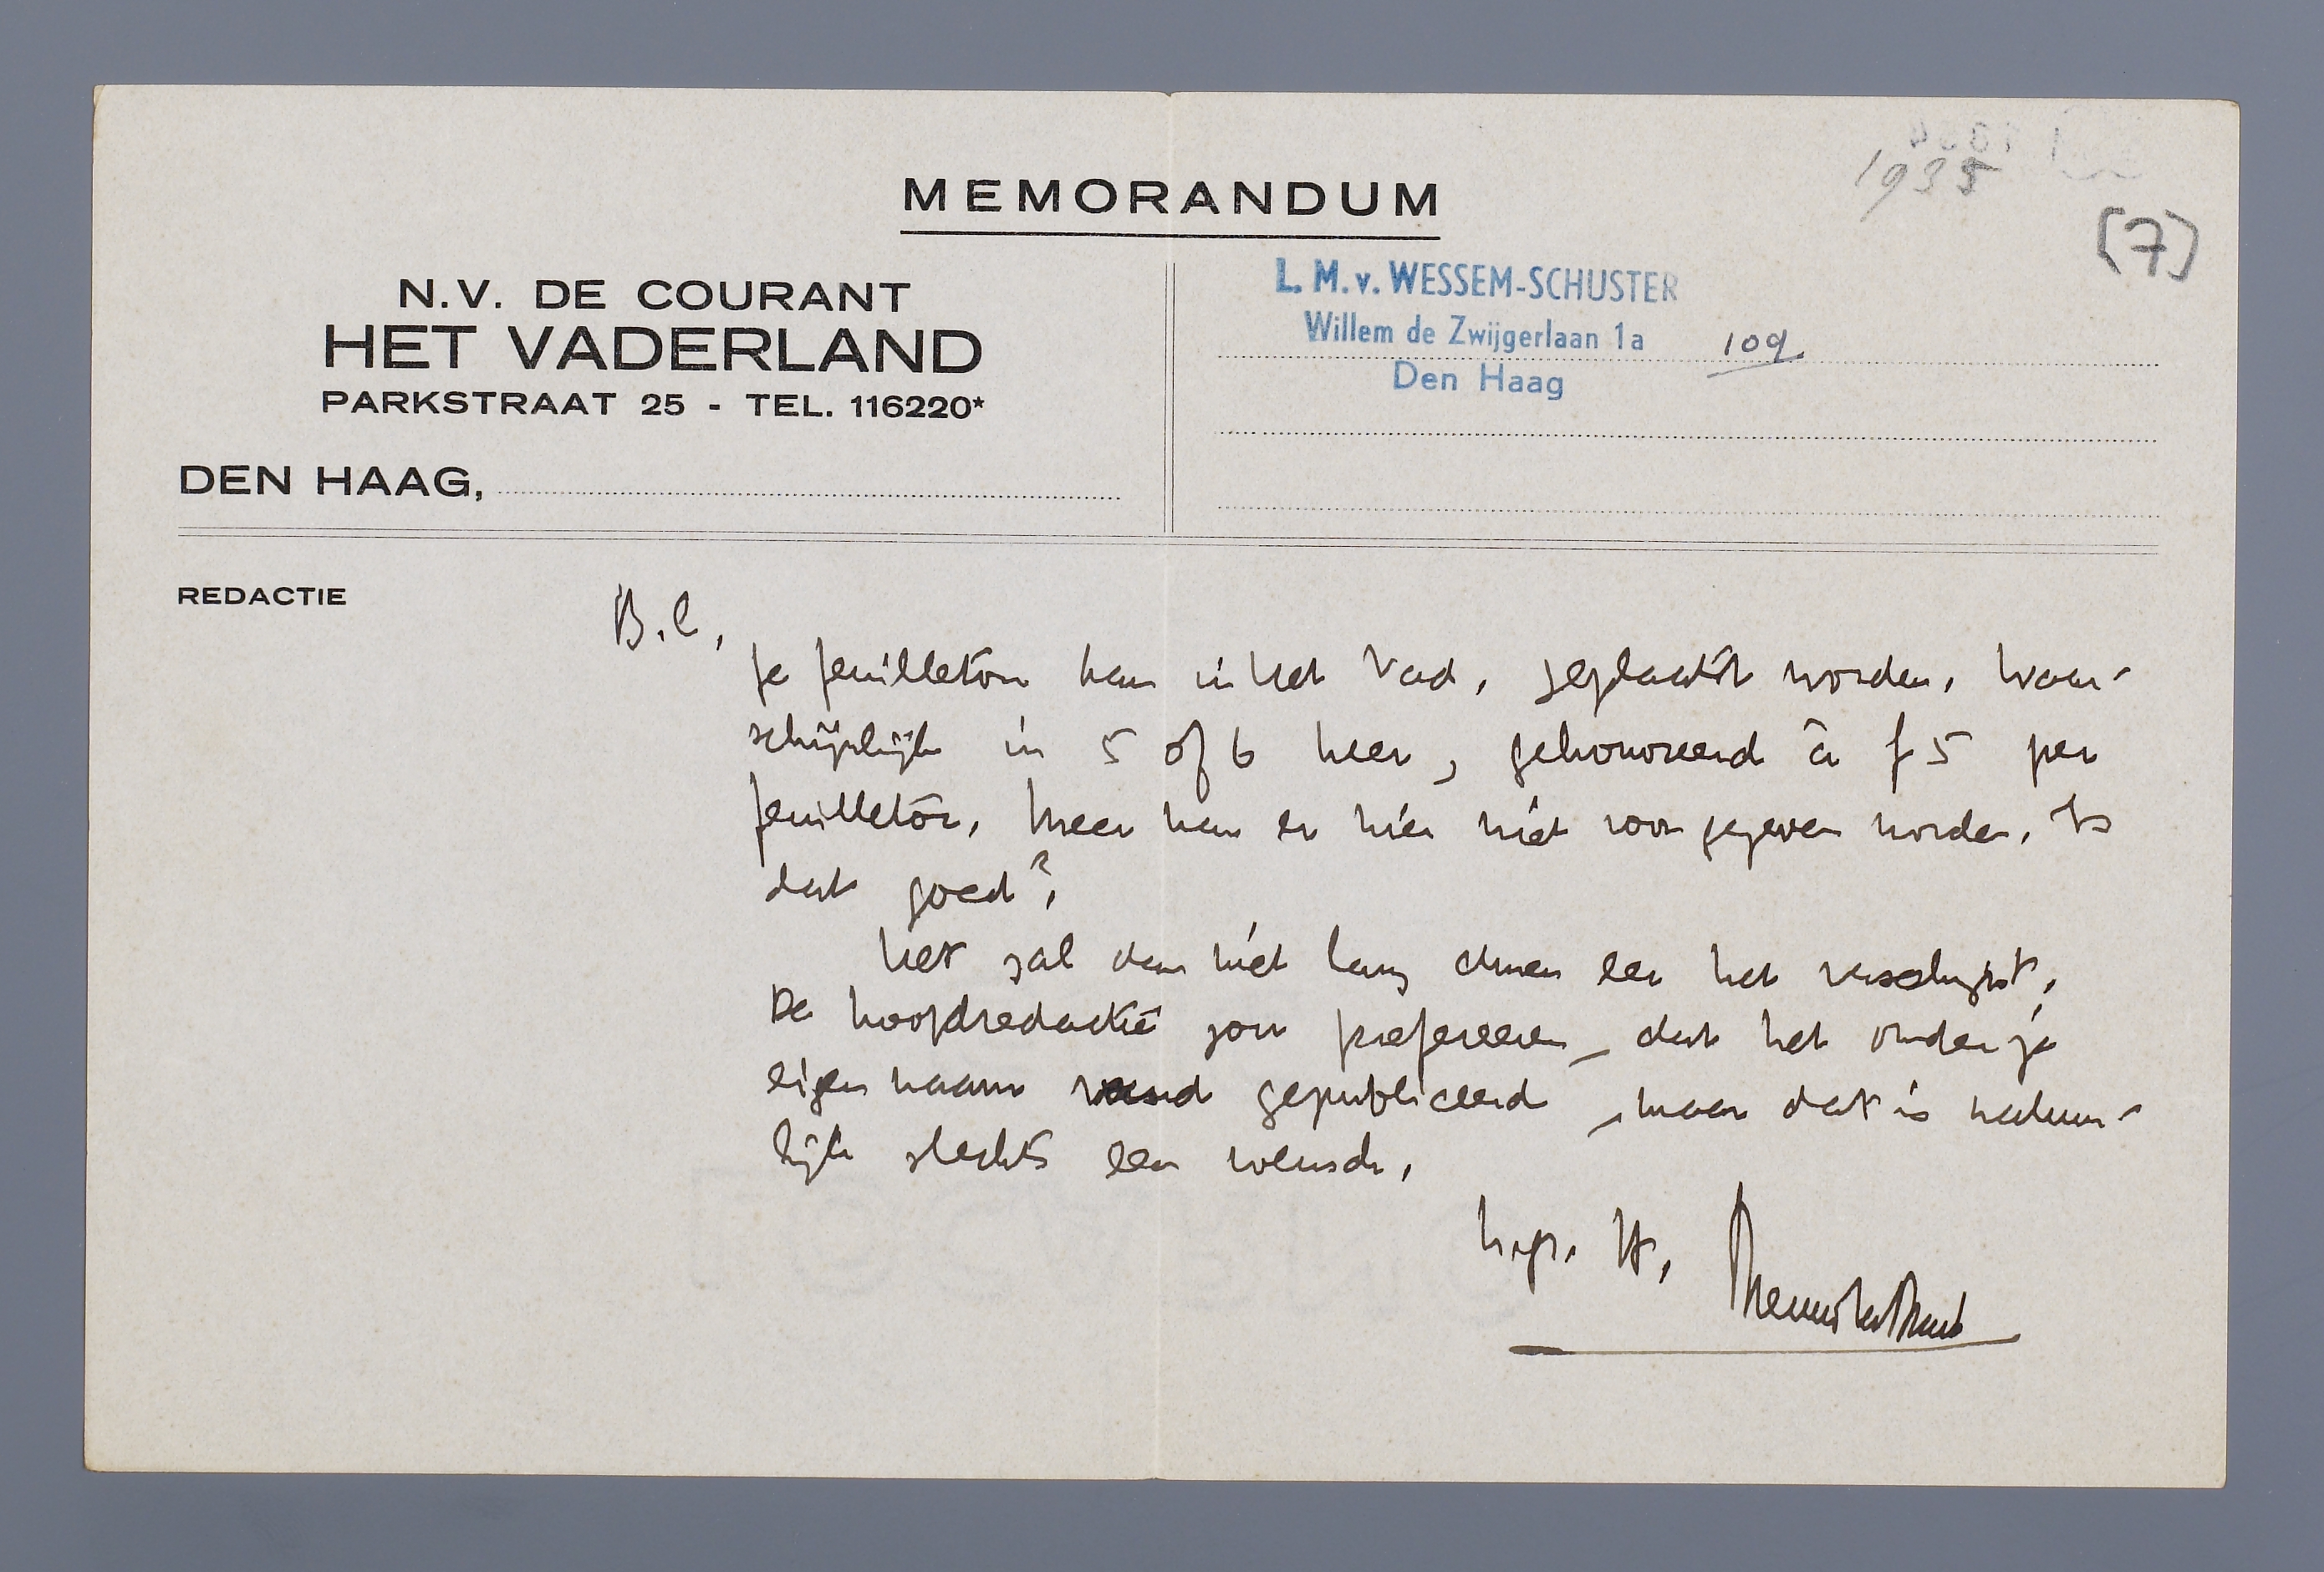 1935
(7)
MEMORANDUM
N.V. DE COURANT
HET VADERLAND
PARKSTRAAT 25 - TEL. 116220*
DEN HAAG,
L. M. v. WESSEM-SCHUSTER
Willem de Zwijgerlaan 1a 109
Den Haag
REDACTIE
B.C.,
Je feuilleton kan in het Vad. geplaatst worden. Waar-
schijnlijk in 5 of 6 keer, gehonoreerd à f 5 per
feuilleton. Meer kan er hier niet voor gegeven worden. Is
dat goed?
Het zal dan niet lang duren eer het verschijnt.
De hoofdredactie zou prefereeren, dat het onder je
eigen naam werd gepubliceerd, maar dat is natuur-
lijk slechts een wensch.
h.gr. tt,
Menno ter Braak